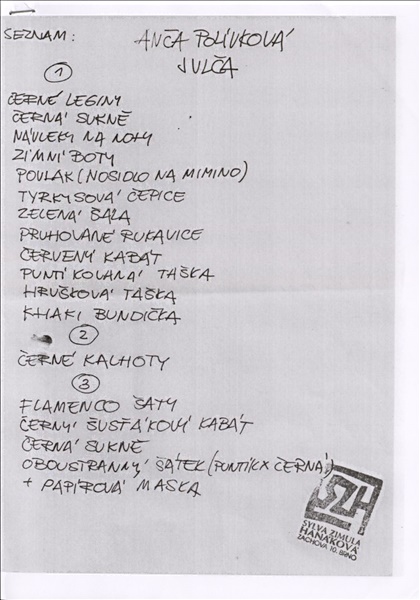 SEZNAM: ANČA POLÍVKOVÁ
JULČA
1
ČERNÉ LEGINY
ČERNÁ SUKNĚ
NÁVLEKY NA NOHY
ZIMNÍ BOTY
POULAK (NOSIDLO NA MIMINO)
TYRKYSOVÁ ČEPICE
ZELENÁ ŠÁLA
PRUHOVANÉ RUKAVICE
ČERVENÝ KABÁT
PUNTÍKOVANÁ TAŠKA
HRUŠKOVÁ TAŠKA
KHAKI BUNDIČKA
2
ČERNÉ KALHOTY
3
FLAMENCO ŠATY
ČERNÝ ŠUSŤÁKOVÝ KABÁT
ČERNÁ SUKNĚ
OBOUSTRANNÝ ŠÁTEK (PUNTÍK X ČERNÁ)
+ PAPÍROVÁ MASKA
SZH
SYLVA ZIMULA
HANÁKOVÁ
ZACHOVA 10, BRNO